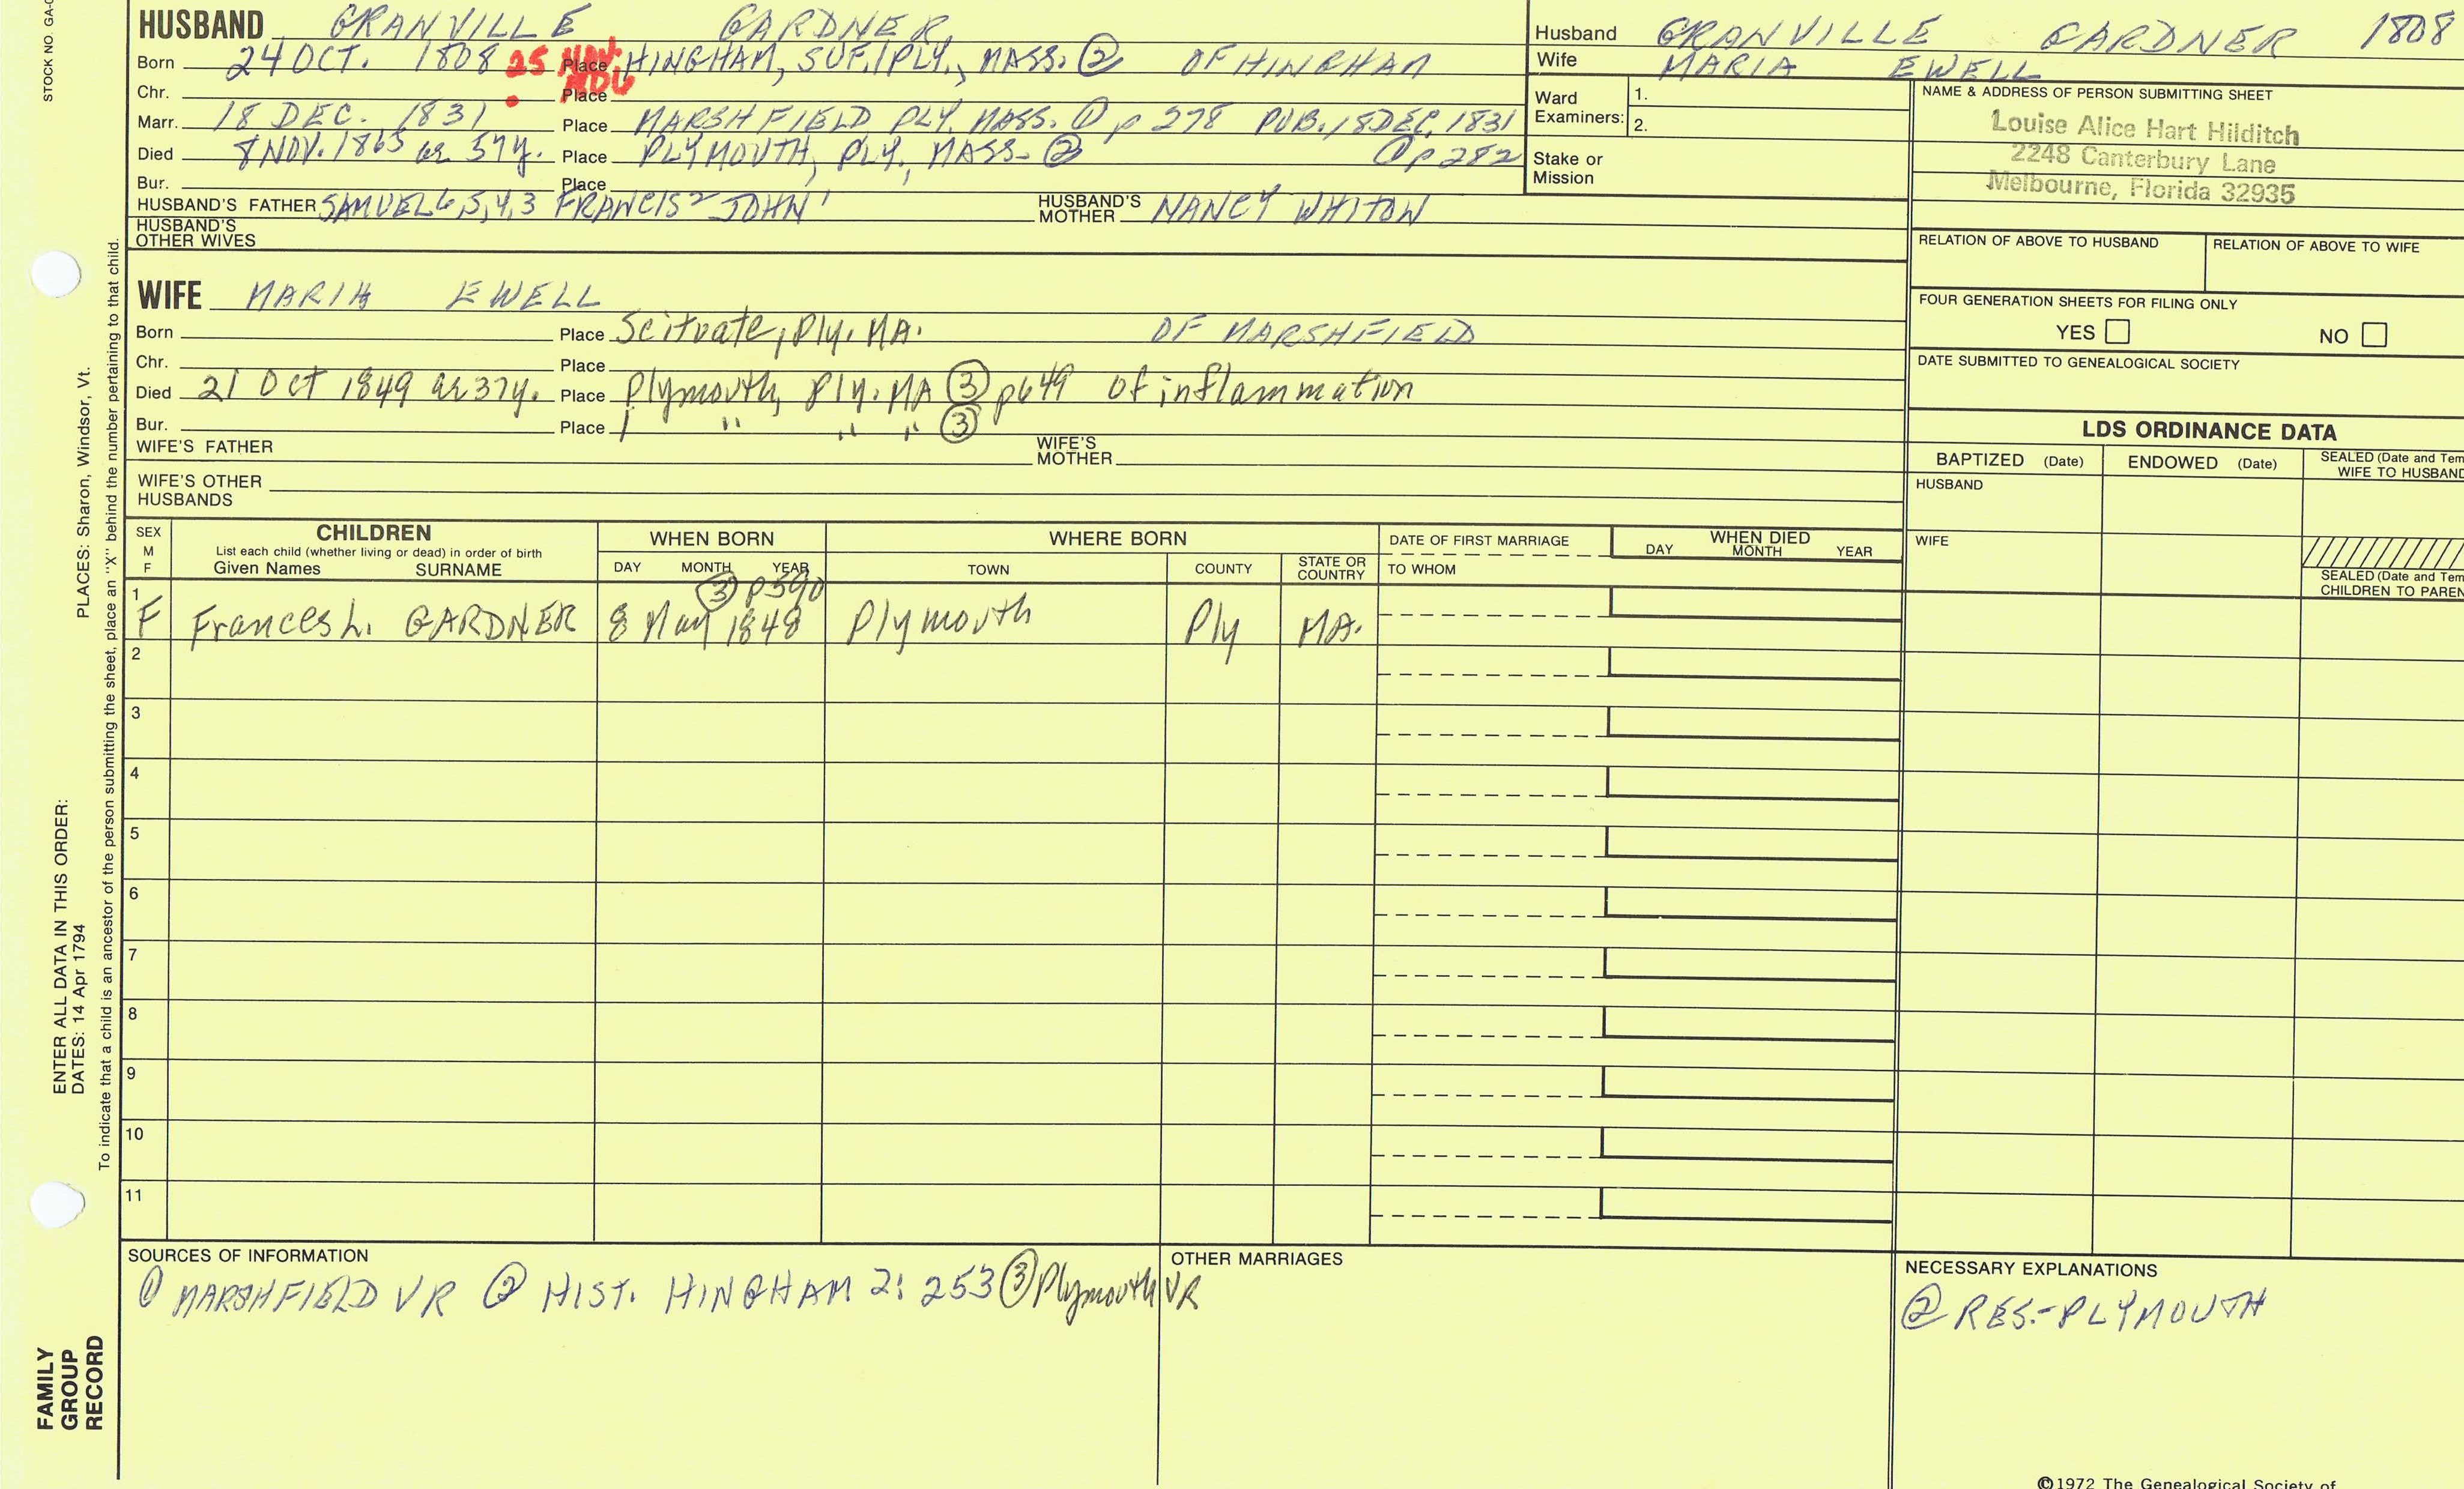 STOCK NO. GA-
HUSBAND GRANVILLE GARDNER
Born 24 OCT. 1808 25 Place HINGHAM, SUF./PLY., MASS. ② OF HINGHAM
Chr. Place
Marr. 18 DEC. 1831 Place MARSHFIELD PLY. MASS. ① p 278 PUB. 18 DEC. 1831
Died 8 NOV. 1865 ae 57y. Place PLYMOUTH, PLY, MASS- ② ① p 282
Bur. Place
HUSBAND'S FATHER SAMUEL 6,5,4,3 FRANCIS 2 JOHN 1 HUSBAND'S MOTHER NANCY WHITON
HUSBAND'S OTHER WIVES
Husband GRANVILLE GARDNER 1808
Wife MARIA EWELL
Ward Examiners: 1.
2.
Stake or Mission
NAME & ADDRESS OF PERSON SUBMITTING SHEET
Louise Alice Hart Hilditch
2248 Canterbury Lane
Melbourne, Florida 32935
RELATION OF ABOVE TO HUSBAND RELATION OF ABOVE TO WIFE
FOUR GENERATION SHEETS FOR FILING ONLY
YES NO
DATE SUBMITTED TO GENEALOGICAL SOCIETY
WIFE MARIA EWELL
Born Place Scituate, Ply. MA. OF MARSHFIELD
Chr. Place
Died 21 Oct 1849 ae 37y. Place Plymouth, Ply. MA ③ p649 of inflammation
Bur. Place " " " ③
WIFE'S FATHER WIFE'S MOTHER
WIFE'S OTHER HUSBANDS
LDS ORDINANCE DATA
BAPTIZED (Date) ENDOWED (Date) SEALED (Date and Tem
WIFE TO HUSBAND
HUSBAND
WIFE
SEALED (Date and Tem
CHILDREN TO PAREN
SEX M F CHILDREN WHEN BORN WHERE BORN DATE OF FIRST MARRIAGE WHEN DIED
List each child (whether living or dead) in order of birth
Given Names SURNAME DAY MONTH YEAR TOWN COUNTY STATE OR COUNTRY TO WHOM DAY MONTH YEAR
③ p590
1 F Frances L. GARDNER 8 May 1848 Plymouth Ply MA.
2
3
4
5
6
7
8
9
10
11
SOURCES OF INFORMATION
① MARSHFIELD VR ② HIST. HINGHAM 2: 253 ③ Plymouth VR
OTHER MARRIAGES
NECESSARY EXPLANATIONS
② RES.- PLYMOUTH
ENTER ALL DATA IN THIS ORDER:
DATES: 14 Apr 1794 PLACES: Sharon, Windsor, Vt.
To indicate that a child is an ancestor of the person submitting the sheet, place an "X" behind the number pertaining to that child.
FAMILY
GROUP
RECORD
©1972 The Genealogical Society of